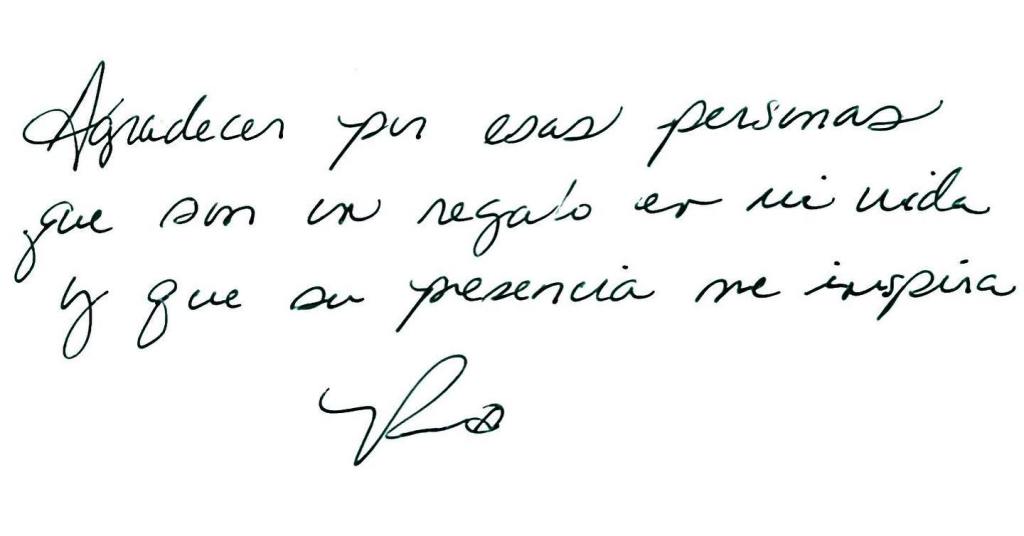 Agradecer por esas personas
que son un regalo en mi vida
y que su presencia me inspira